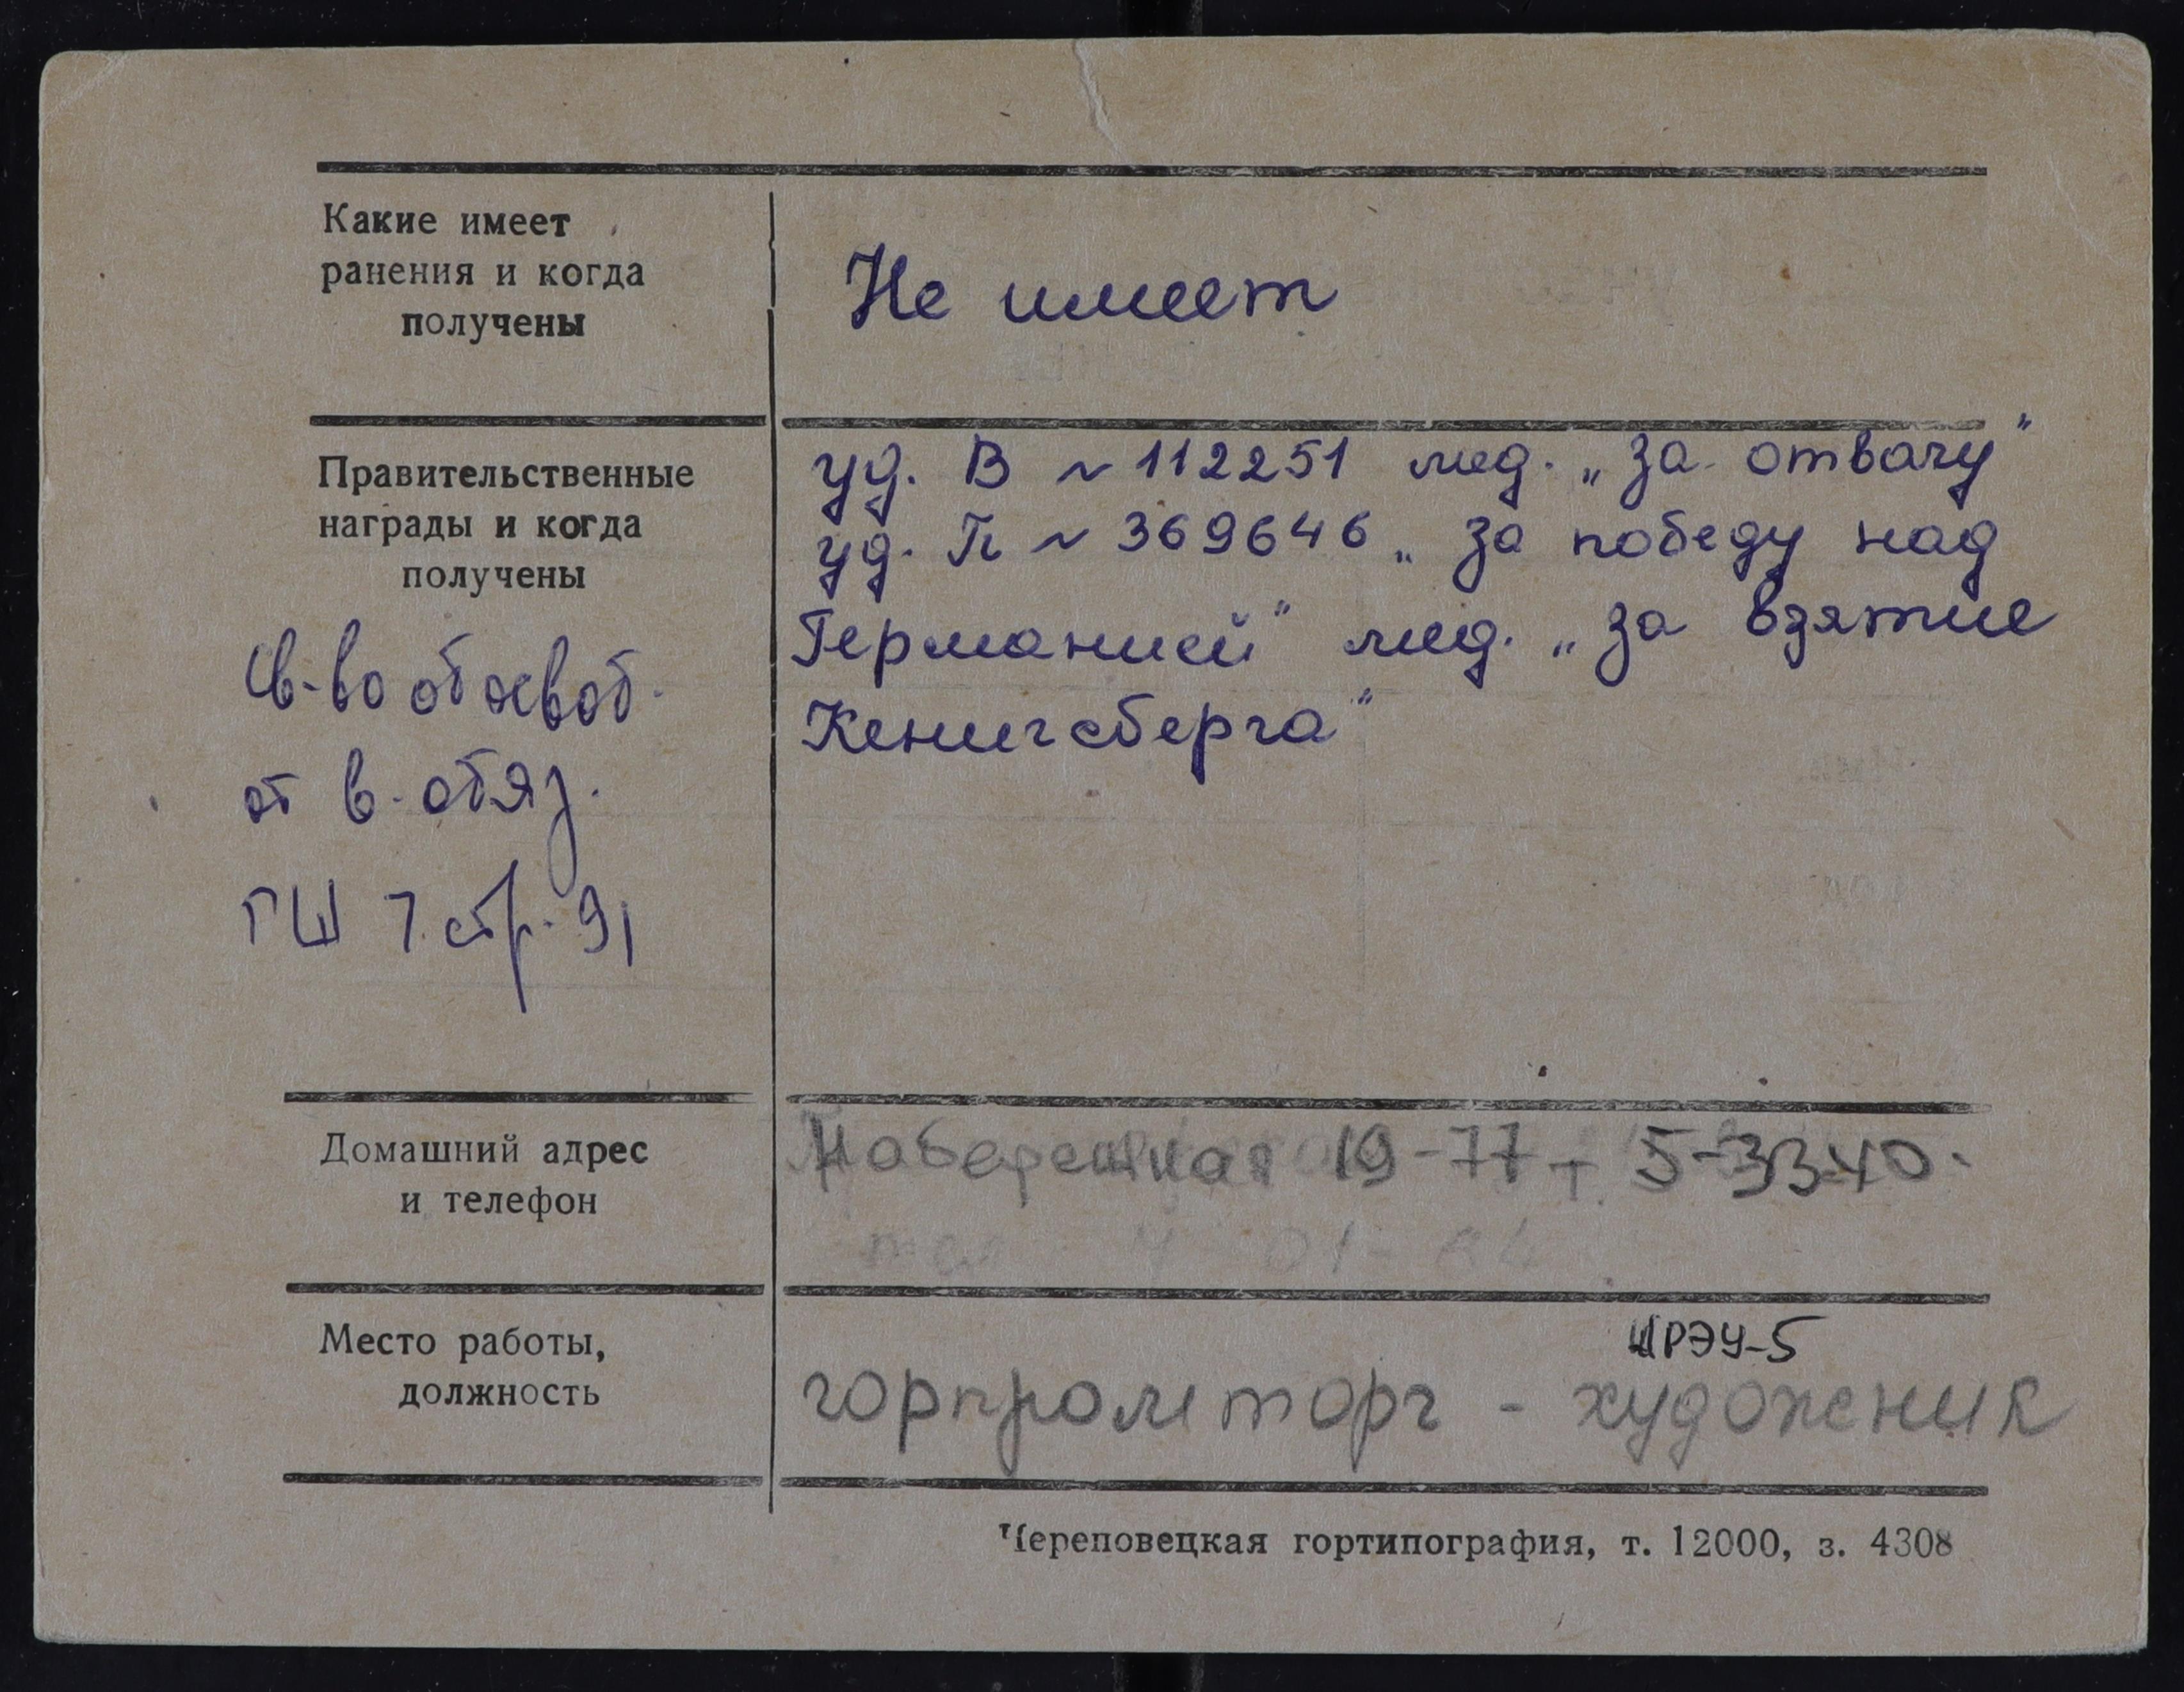 Какие имеет
ранения и когда
получены
Не имеет
Правительственные
награды и когда
получены
уд. В ~ 112251 мед. „За отвагу"
уд. П ~ 369646 „За победу над
Германией" мед. „За взятие
Кенигсберга"
св-во об освоб.
от в. обяз.
ГШ 7 стр. 91
Домашний адрес
и телефон
Набережная 19-77 т. 5-33-40.
Место работы,
должность
ЖРЭУ-5
горпромторг - художник
Череповецкая гортипография, т. 12000, з. 4308